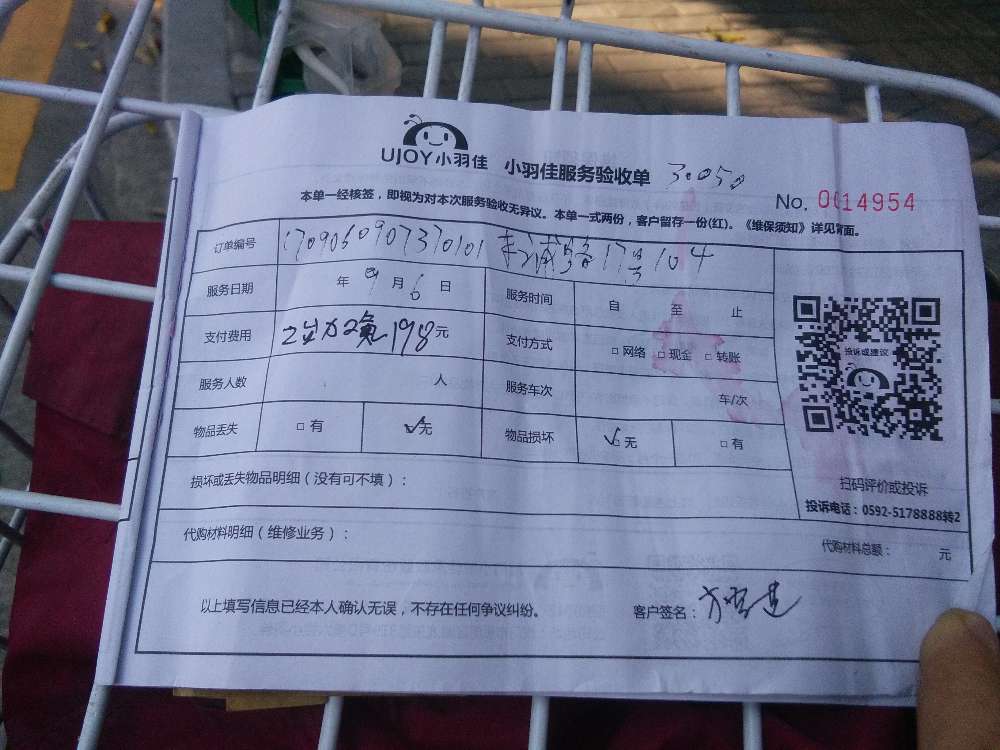 UJOY小羽佳 小羽佳服务验收单 3.050
No. 0014954
本单一经核签，即视为对本次服务验收无异议。本单一式两份，客户留存一份(红)。《维保须知》详见背面。
订单编号 1709060907370101 17号104
服务日期 年 9 月 6 日 服务时间 自 至 止
支付费用 198元 支付方式 □网络 □现金 □转账
服务人数 人 服务车次 车/次
物品丢失 □有 ☑无 物品损坏 ☑无 □有
投诉或建议
扫码评价或投诉
投诉电话：0592-5178888转2
损坏或丢失物品明细（没有可不填）：
代购材料明细（维修业务）： 代购材料总额： 元
以上填写信息已经本人确认无误，不存在任何争议纠纷。 客户签名：